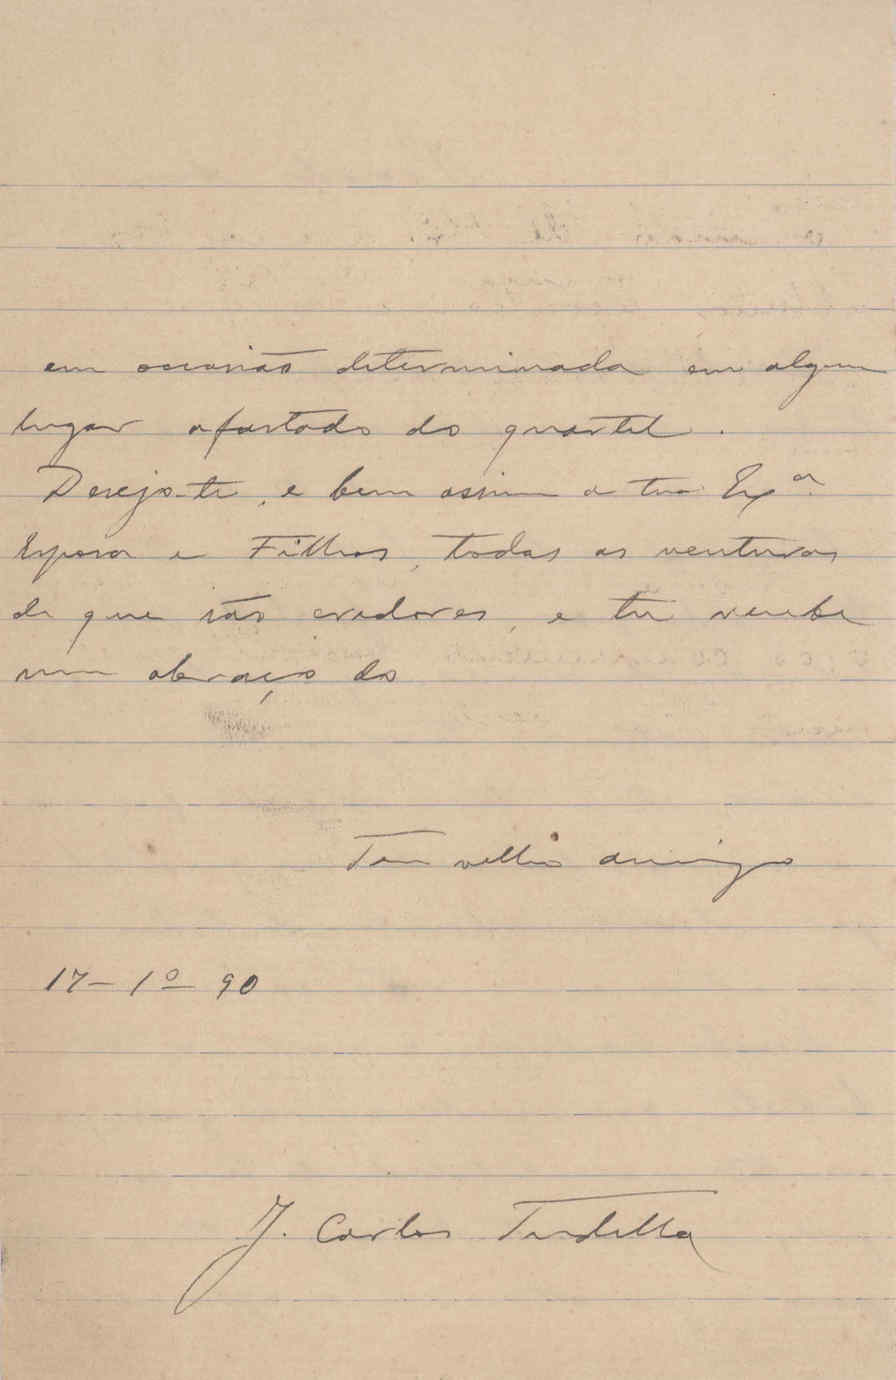 em occasião determinada em algum
lugar afastado do quartel.
Desejo-te, e bem assim a tua Exª
Esposa e Filhos, todas as venturas
de que são credores, e tu recebe
um abraço do
Teu velho amigo
17-1º-90
J. Carlos